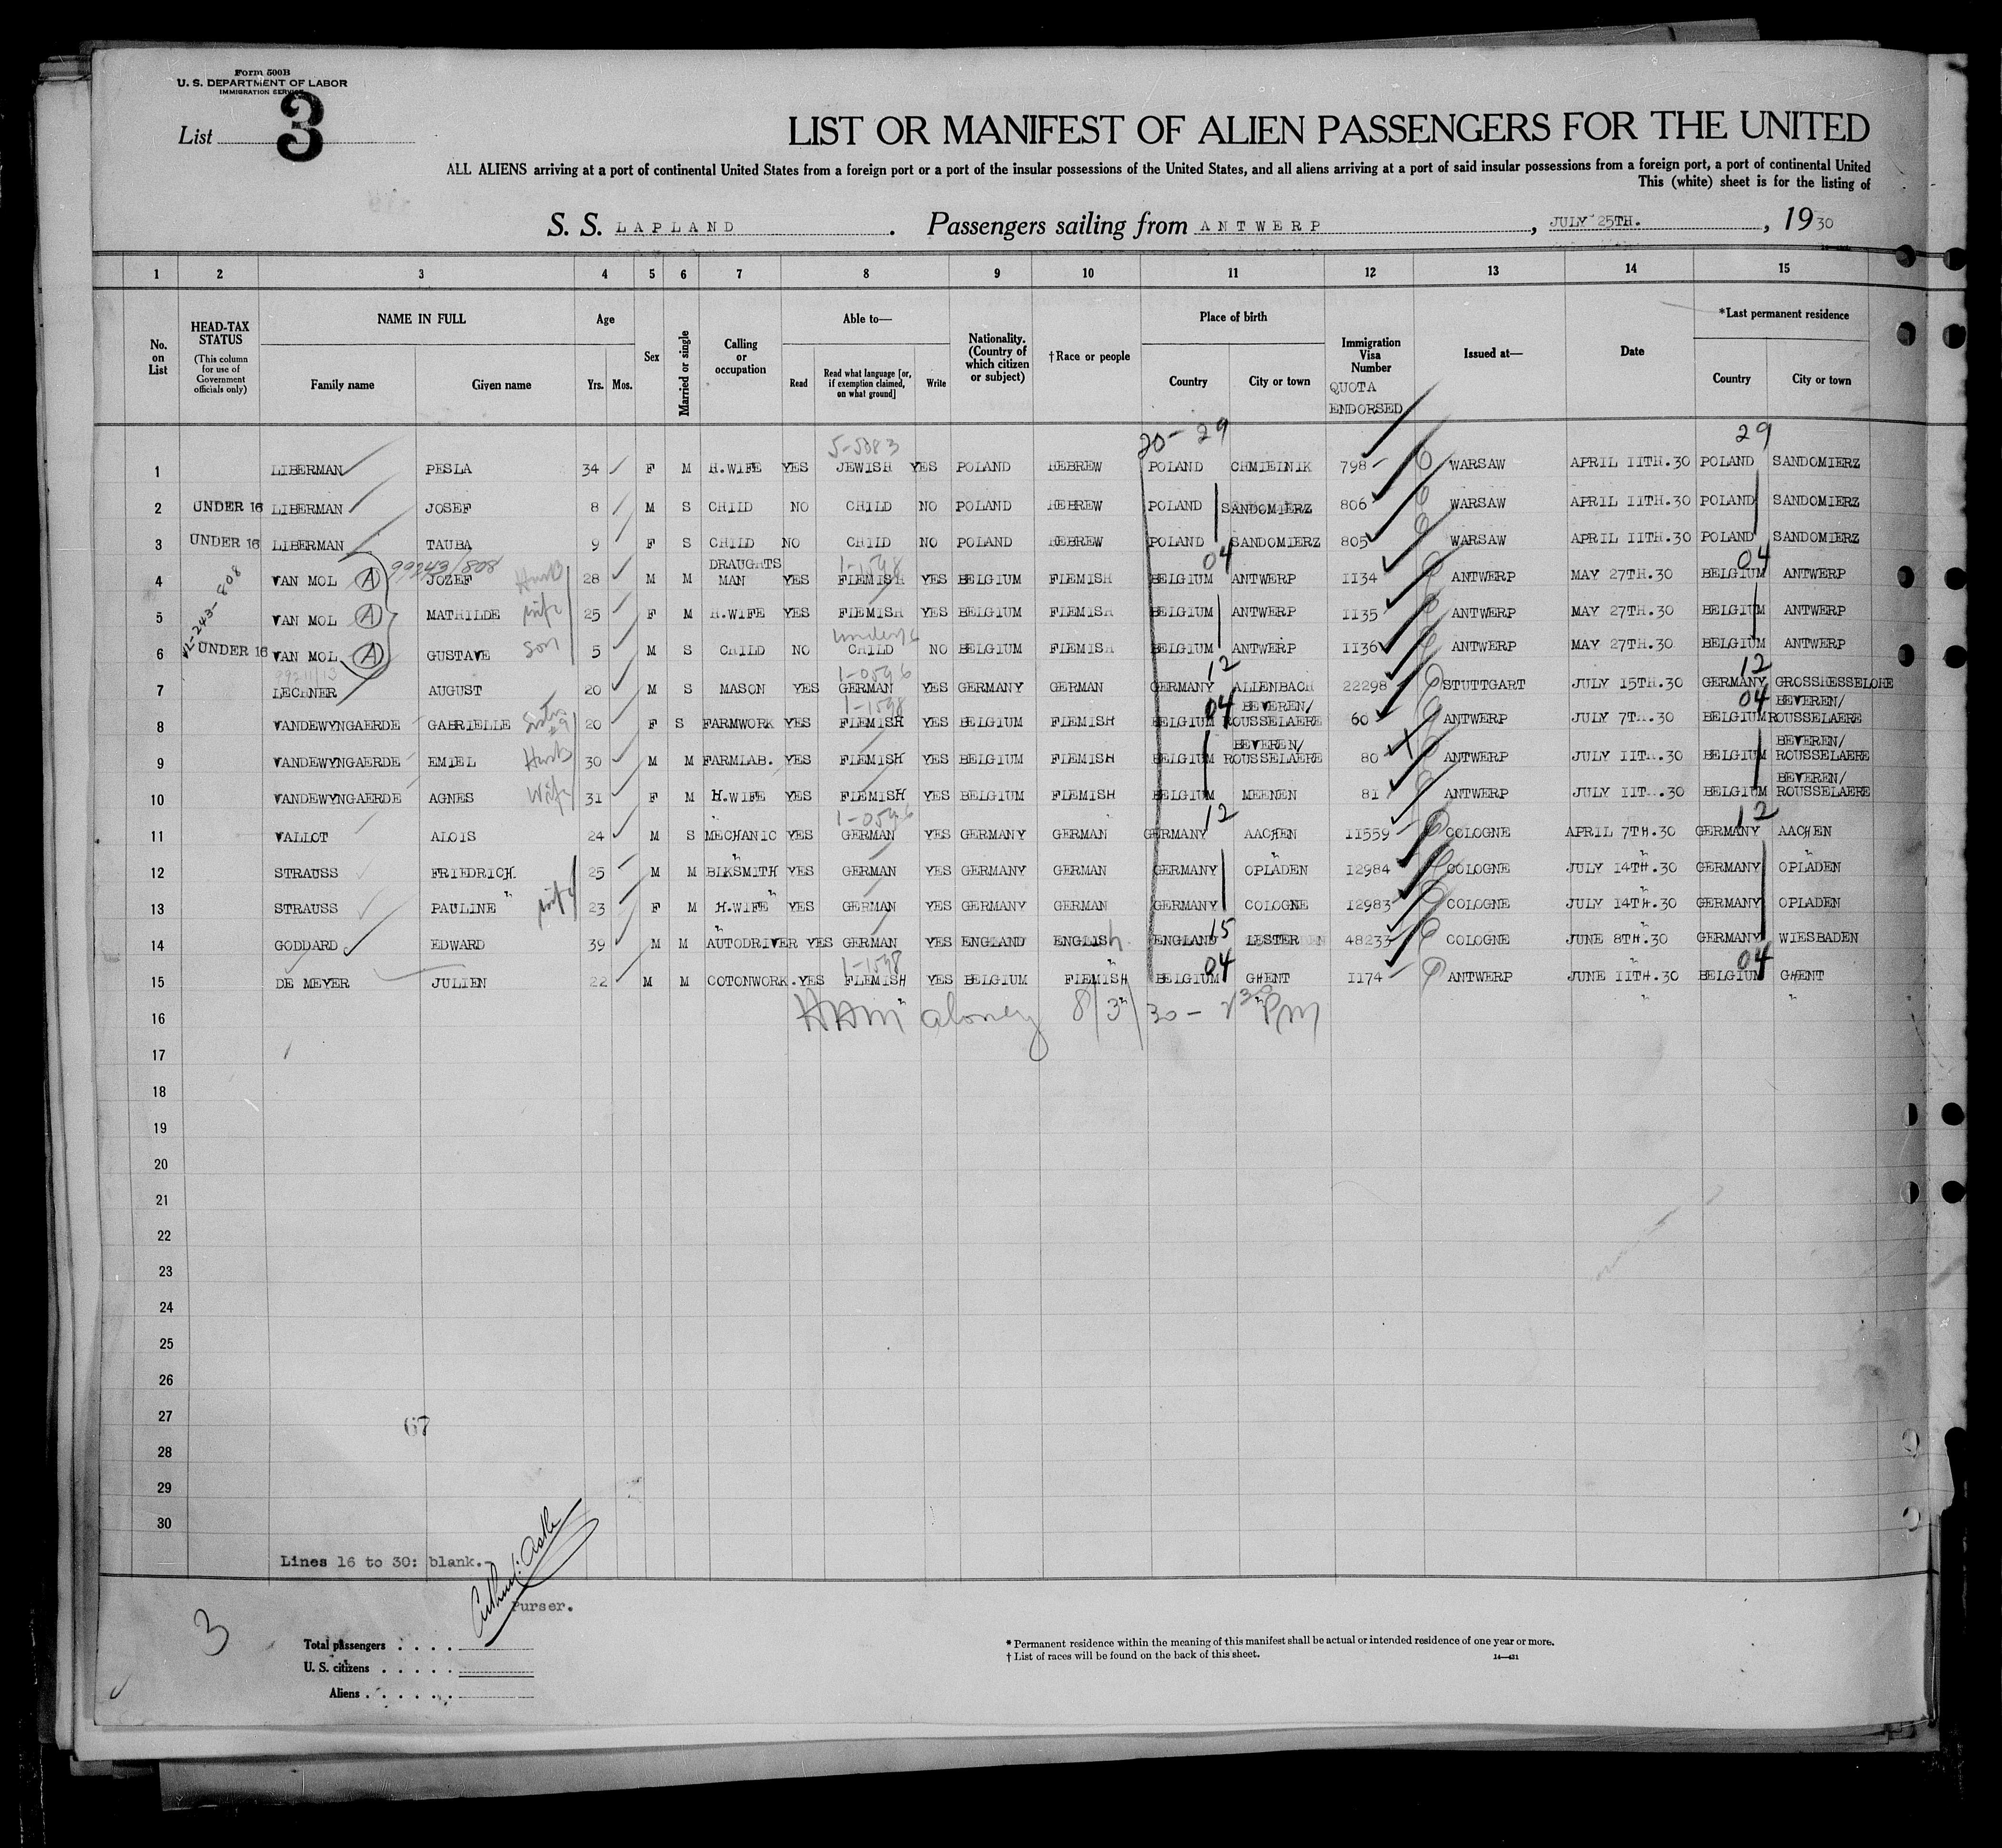 Form 500B
U. S. DEPARTMENT OF LABOR
IMMIGRATION SERVICE
List 3
LIST OR MANIFEST OF ALIEN PASSENGERS FOR THE UNITED
ALL ALIENS arriving at a port of continental United States from a foreign port or a port of the insular possessions of the United States, and all aliens arriving at a port of said insular possessions from a foreign port, a port of continental United
This (white) sheet is for the listing of
S. S. LAPLAND . Passengers sailing from ANTWERP , JULY 25TH. , 1930
1 2 3 4 5 6 7 8 9 10 11 12 13 14 15
No. on List HEAD-TAX STATUS (This column for use of Government officials only) NAME IN FULL Family name Given name Age Yrs. Mos. Sex Married or single Calling or occupation Able to— Read Read what language [or, if exemption claimed, on what ground] Write Nationality. (Country of which citizen or subject) †Race or people Place of birth Country City or town Immigration Visa Number QUOTA ENDORSED Issued at— Date *Last permanent residence Country City or town
5-5083 20-29 29
1 LIBERMAN PESLA 34 F M H.WIFE YES JEWISH YES POLAND HEBREW POLAND CHMIELNIK 798 WARSAW APRIL 11TH.30 POLAND SANDOMIERZ
2 UNDER 16 LIBERMAN JOSEF 8 M S CHILD NO CHILD NO POLAND HEBREW POLAND SANDOMIERZ 806 WARSAW APRIL 11TH.30 POLAND SANDOMIERZ
3 UNDER 16 LIBERMAN TAUBA 9 F S CHILD NO CHILD NO POLAND HEBREW POLAND SANDOMIERZ 805 WARSAW APRIL 11TH.30 POLAND SANDOMIERZ
99243/808 1-1598 04 04
4 VAN MOL A JOZEF Husb 28 M M DRAUGHTS MAN YES FLEMISH YES BELGIUM FLEMISH BELGIUM ANTWERP 1134 ANTWERP MAY 27TH.30 BELGIUM ANTWERP
5 VAN MOL A MATHILDE wife 25 F M H.WIFE YES FLEMISH YES BELGIUM FLEMISH BELGIUM ANTWERP 1135 ANTWERP MAY 27TH.30 BELGIUM ANTWERP
under 16
6 UNDER 16 VAN MOL A GUSTAVE son 5 M S CHILD NO CHILD NO BELGIUM FLEMISH BELGIUM ANTWERP 1136 ANTWERP MAY 27TH.30 BELGIUM ANTWERP
1-0596 12 12
7 LECHNER AUGUST 20 M S MASON YES GERMAN YES GERMANY GERMAN GERMANY ALLENBACH 22298 STUTTGART JULY 15TH.30 GERMANY GROSSHESSELOHE
1-1598 04 04
8 VANDEWYNGAERDE GABRIELLE Sister 29 20 F S FARMWORK YES FLEMISH YES BELGIUM FLEMISH BELGIUM BEVEREN/ ROUSSELAERE 60 ANTWERP JULY 7TH.30 BELGIUM BEVEREN/ ROUSSELAERE
9 VANDEWYNGAERDE EMIEL Husb 30 M M FARMLAB. YES FLEMISH YES BELGIUM FLEMISH BELGIUM BEVEREN/ ROUSSELAERE 80 ANTWERP JULY 11TH.30 BELGIUM BEVEREN/ ROUSSELAERE
10 VANDEWYNGAERDE AGNES Wife 31 F M H.WIFE YES FLEMISH YES BELGIUM FLEMISH BELGIUM MEENEN 81 ANTWERP JULY 11TH.30 BELGIUM BEVEREN/ ROUSSELAERE
1-0596 12 12
11 VALLOT ALOIS 24 M S MECHANIC YES GERMAN YES GERMANY GERMAN GERMANY AACHEN 11559 COLOGNE APRIL 7TH.30 GERMANY AACHEN
12 STRAUSS FRIEDRICH 25 M M BLKSMITH YES GERMAN YES GERMANY GERMAN GERMANY OPLADEN 12984 COLOGNE JULY 14TH.30 GERMANY OPLADEN
13 STRAUSS PAULINE wife 23 F M H.WIFE YES GERMAN YES GERMANY GERMAN GERMANY COLOGNE 12983 COLOGNE JULY 14TH.30 GERMANY OPLADEN
14 GODDARD EDWARD 39 M M AUTODRIVER YES GERMAN YES ENGLAND ENGLISH ENGLAND 15 LESTER 48233 COLOGNE JUNE 8TH.30 GERMANY WIESBADEN
1-1598 04 04
15 DE MEYER JULIEN 22 M M COTONWORK. YES FLEMISH YES BELGIUM FLEMISH BELGIUM GHENT 1174 ANTWERP JUNE 11TH.30 BELGIUM GHENT
16
17
18
19
20
21
22
23
24
25
26
27
67
28
29
30
Lines 16 to 30: blank.
Purser.
3
Total passengers . . . .
U. S. citizens . . . . .
Aliens . . . . . .
* Permanent residence within the meaning of this manifest shall be actual or intended residence of one year or more.
† List of races will be found on the back of this sheet.
14—431